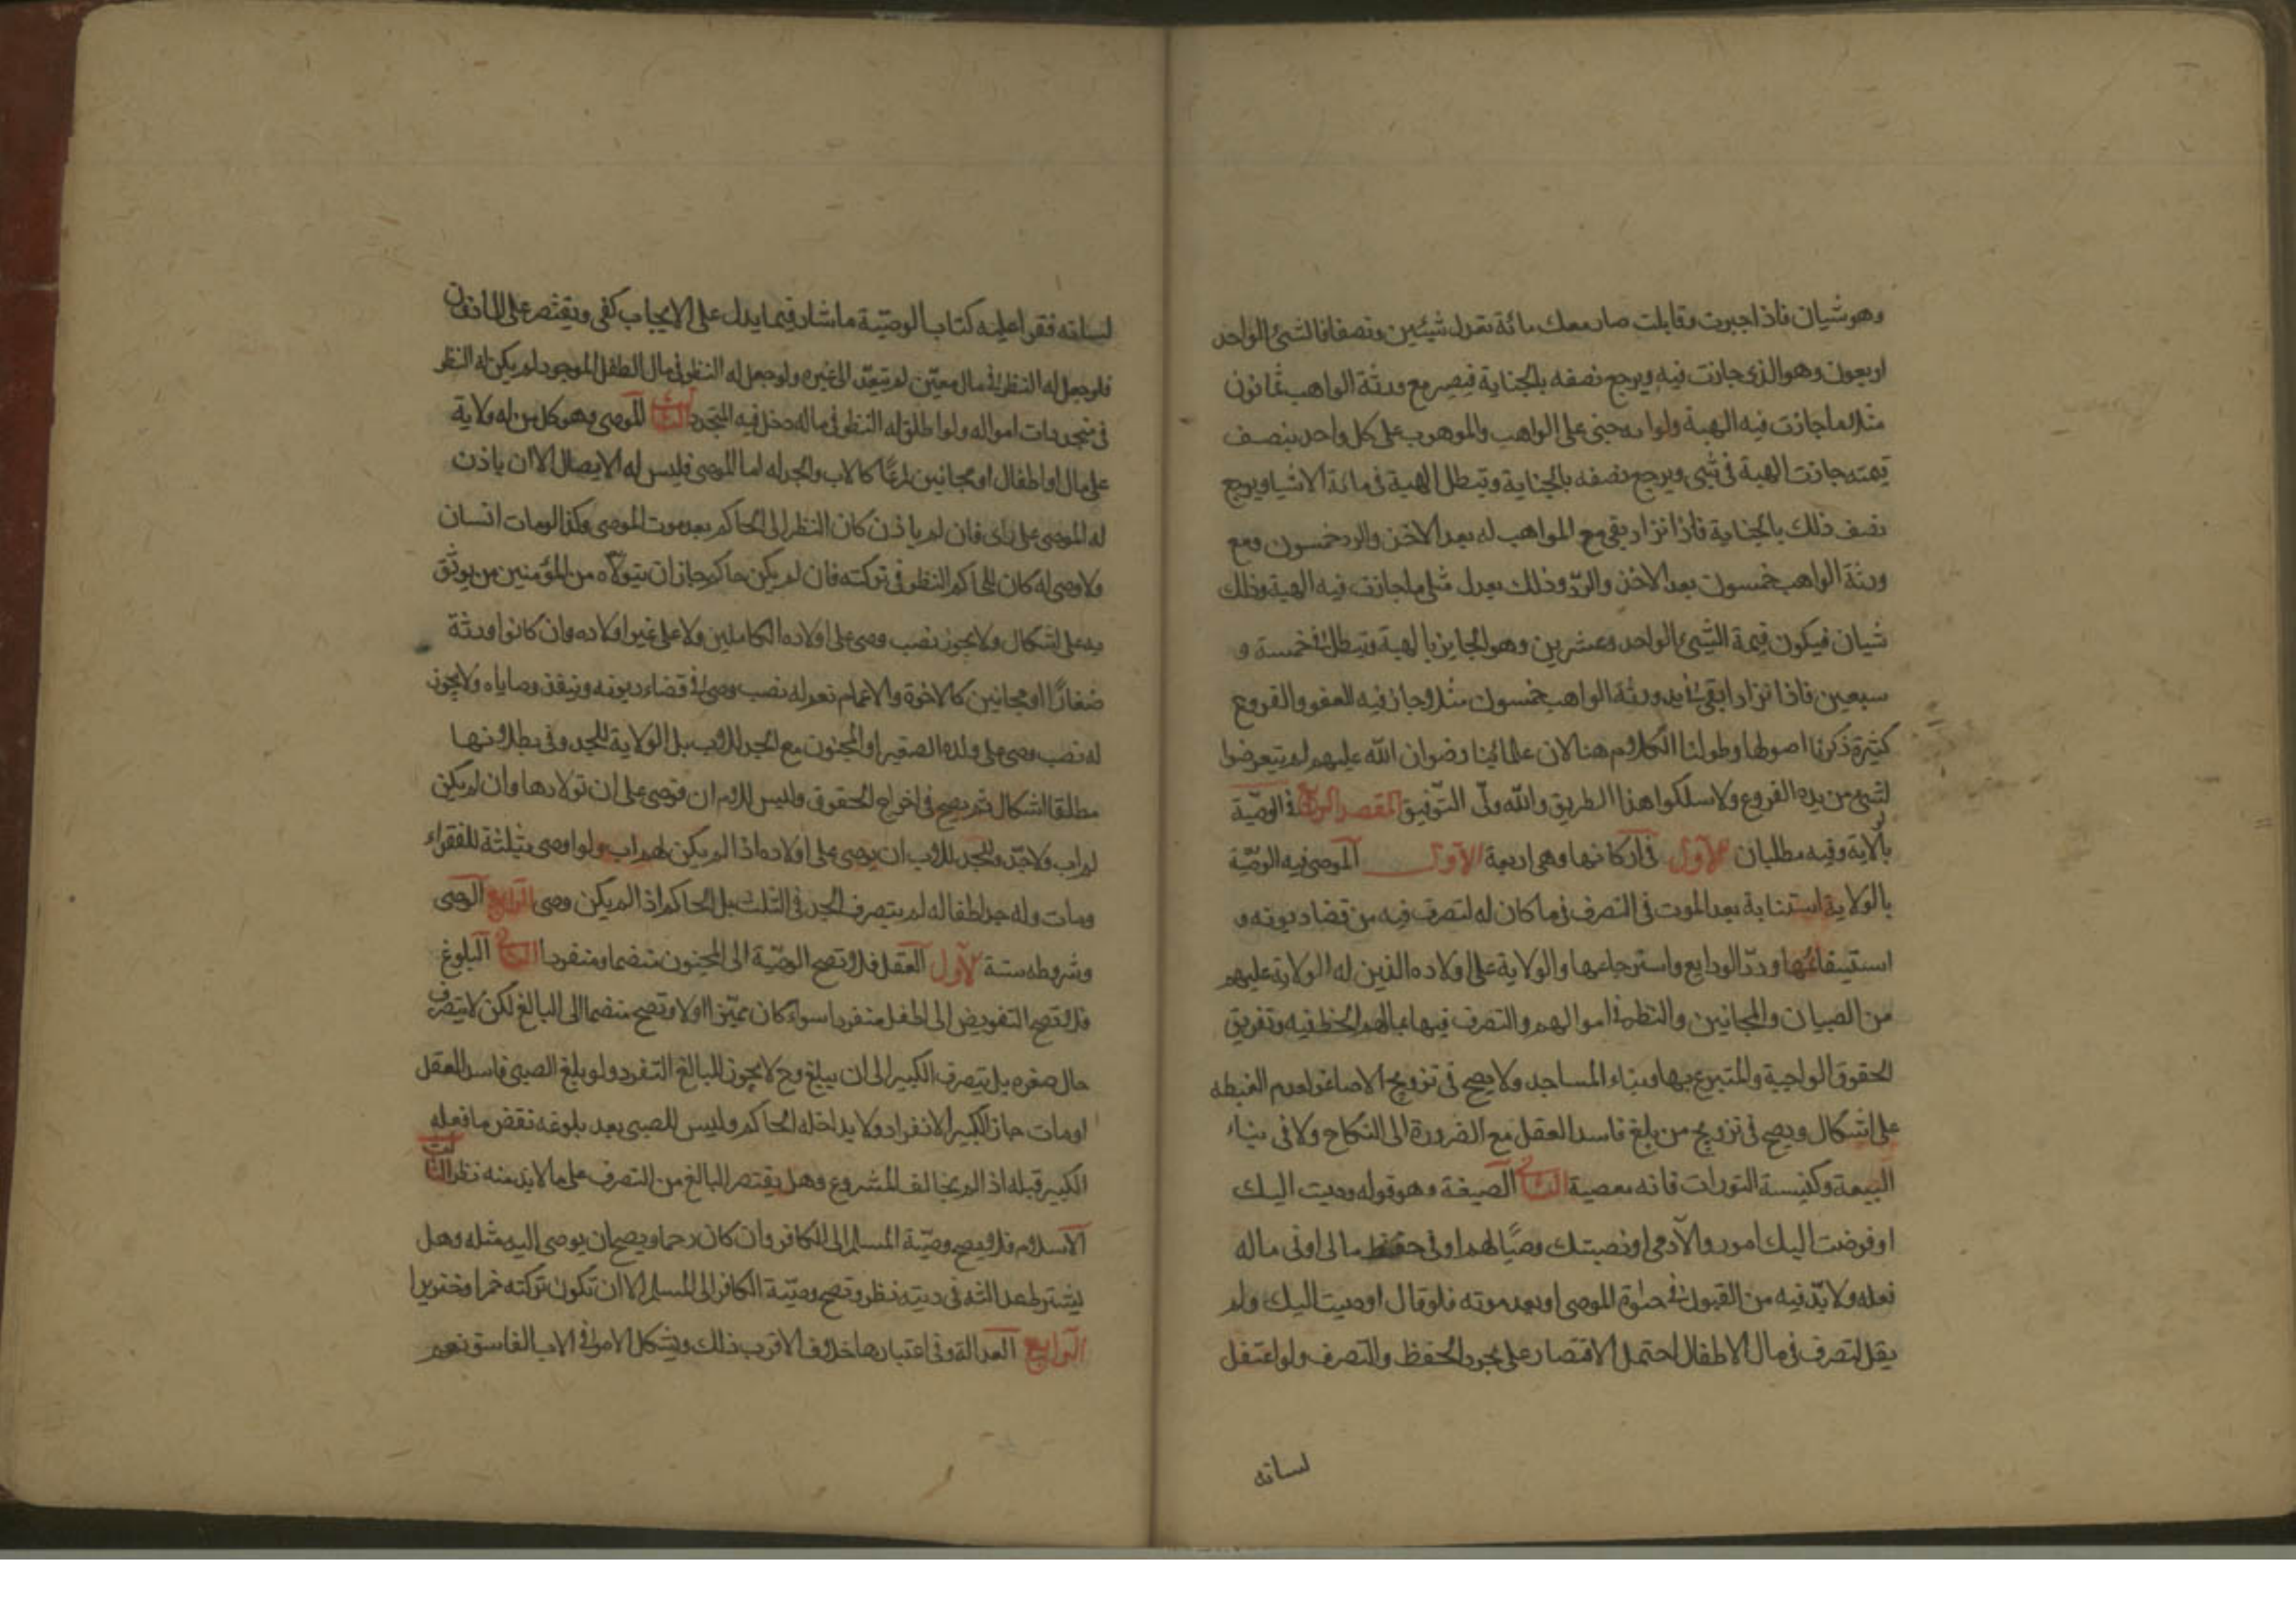 وهو شيان فاذا جبرت وقابلت صار معك مائة تعدل شيئين ونصفا فالشئ الواحد
اربعون وهو الذى جازت فيه ويرجع نصفه بالجناية فيصير مع ورثة الواهب ثمانون
مثلا ما جازت فيه الهبة ولو انه جنى على الواهب والموهوب على كل واحد بنصف
قيمته جازت الهبة فى شئ ويرجع نصفه بالجناية وتبطل الهبة فى مائة الا شيا ويرجع
نصف ذلك بالجناية فاذا ترادا بقى مع المواهب له بعد الاخذ والرد خمسون ومع
ورثة الواهب خمسون بعد الاخذ والردّ وذلك يعدل مثلى ما جازت فيه الهبة وذلك
شيان فيكون قيمة الشئ الواحد وعشرين وهو الجايز بالهبة وتبطل فى خمسة و
سبعين فاذا ترادا بقى فى يد ورثة الواهب خمسون مثلا وجاز فيه العفو والفروع
كثيرة ذكرنا اصولها وطولنا الكلام هنا لان علمائنا رضوان الله عليهم لم يتعرضوا
لشئ من هذه الفروع ولا سلكوا هذا الطريق والله ولّى التّوفيق المقصد الرابع فى الوصيّة
بالولاية وفيه مطلبان الاول فى اركانها وهى اربعة الاول الموصى فيه الوصيّة
بالولاية استنابة بعد الموت فى التصرف فيما كان له لتصرف فيه من قضاء ديونه و
استيفائها وردّ الودايع واسترجاعها والولاية على اولاده الذين له الولاية عليهم
من الصبيان والمجانين والنظر فى اموالهم والتصرف فيها بما لهم الحظ فيه وتفريق
الحقوق الواجبة والمتبرع بها وبناء المساجد ولا يصح فى تزويج الاصاغر لعدم الغبطه
على اشكال ويصح فى تزويج من بلغ فاسد العقل مع الضرورة الى النكاح ولا فى بناء
البيعة وكنيسة التورات فانه معصية الثانى الصيغة وهو قوله وصيت اليك
او فوضت اليك امور والآدمى او نصبتك وصيًا لهم او فى حفظ مالى او فى ماله
فعله ولا بدّ فيه من القبول فى حيوة الموصى او بعد موته فلو قال اوصيت اليك ولم
يقل لتصرف فى مال الاطفال احتمل الاقتصار على مجرد الحفظ والتصرف ولو اعتقل
لسانه
لسانه فقرا عليه كتاب الوصيّة فاشار فيما يدل على الايجاب كفى ويقتصر على الماذون
فلو جعل له النظر فى مال معيّن لم يتعدّ الى غيره ولو جعل له النظر فى مال الطفل الموجود لم يكن له النظر
فى متجددات امواله ولو اطلق له النظر فى ماله دخل فيه المتجدد الثالث الموصى وهو كل من له ولاية
على مال او اطفال او مجانين شرعًا كالاب والجد له اما الوصى فليس له الايصال الا ان ياذن
له الموصى على راى فان لم ياذن كان النظر الى الحاكم بعد موت الموصى وكذا لو مات انسان
ولا وصى له كان للحاكم النظر فى تركته فان لم يكن حاكم جاز ان يتولاه من المؤمنين من يوثق
به على اشكال ولا يجوز نصب وصى على اولاده الكاملين ولا على غير اولاده وان كانوا ورثة
صغارًا او مجانين كالاخوة والاعمام نعم له نصب وصى فى قضاء ديونه وتنفيذ وصاياه ولا يجوز
له نصب وصى على ولده الصغير او المجنون مع الجد للاب بل الولاية للجد وفى بطلانها
مطلقا اشكال ثم يصح فى اخراج الحقوق وليس للام ان توصى على ان تولادها وان لم يكن
لهم اب ولا جدّ وللجد للاب ان يوصى على اولاده اذا لم يكن لهم اب ولو اوصى بثلثة للفقراء
ومات وله جد اطفاله لم يتصرف الجد فى الثلث بل الحاكم اذا لم يكن وصى الرابع الوصى
وشروطه ستة الاول العقل فلا تصح الوصيّة الى المجنون منضما ومنفردا الثانى البلوغ
فلا تصح التفويض الى الطفل منفردا سواء كان مميّزا او لا وتصح منضما الى البالغ لكن لا يتصرف
حال صغره بل يتصرف الكبير الى ان يبلغ وح لا يجوز للبالغ التفرد ولو بلغ الصبى فاسد العقل
او مات جاز للكبير الانفراد ولا يداخله الحاكم وليس للصبى بعد بلوغه نقض ما فعله
الكبير قبله اذا لم يخالف المشروع وهل يقتصر البالغ من التصرف على ما لا بد منه نظر الثالث
الاسلام فلا يصح وصيّة المسلم الى الكافر وان كان رحما ويصح ان يوصى اليه مثله وهل
يشترط عدالته فى دينه نظر وتصح وصيّة الكافر الى المسلم الا ان تكون تركته خمرا وخنزيرا
الرابع العدالة وفى اعتبارها خلاف الاقرب ذلك ويشكل الامر فى الاب الفاسق نعم